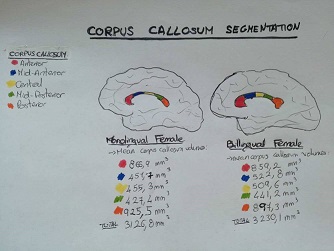 CORPUS CALLOSUM SEGMENTATION
CORPUS CALLOSUM
Anterior
Mid-Anterior
Central
Mid-Posterior
Posterior
Monolingual Female
→ Mean corpus callosum volumes:
866,9 mm³
451,7 mm³
455,3 mm³
427,4 mm³
925,5 mm³
TOTAL 3126,8 mm³
Billingual Female
→ mean corpus callosum volumes
859,2 mm³
522,8 mm³
509,6 mm³
441,2 mm³
897,3 mm³
TOTAL 3230,1 mm³